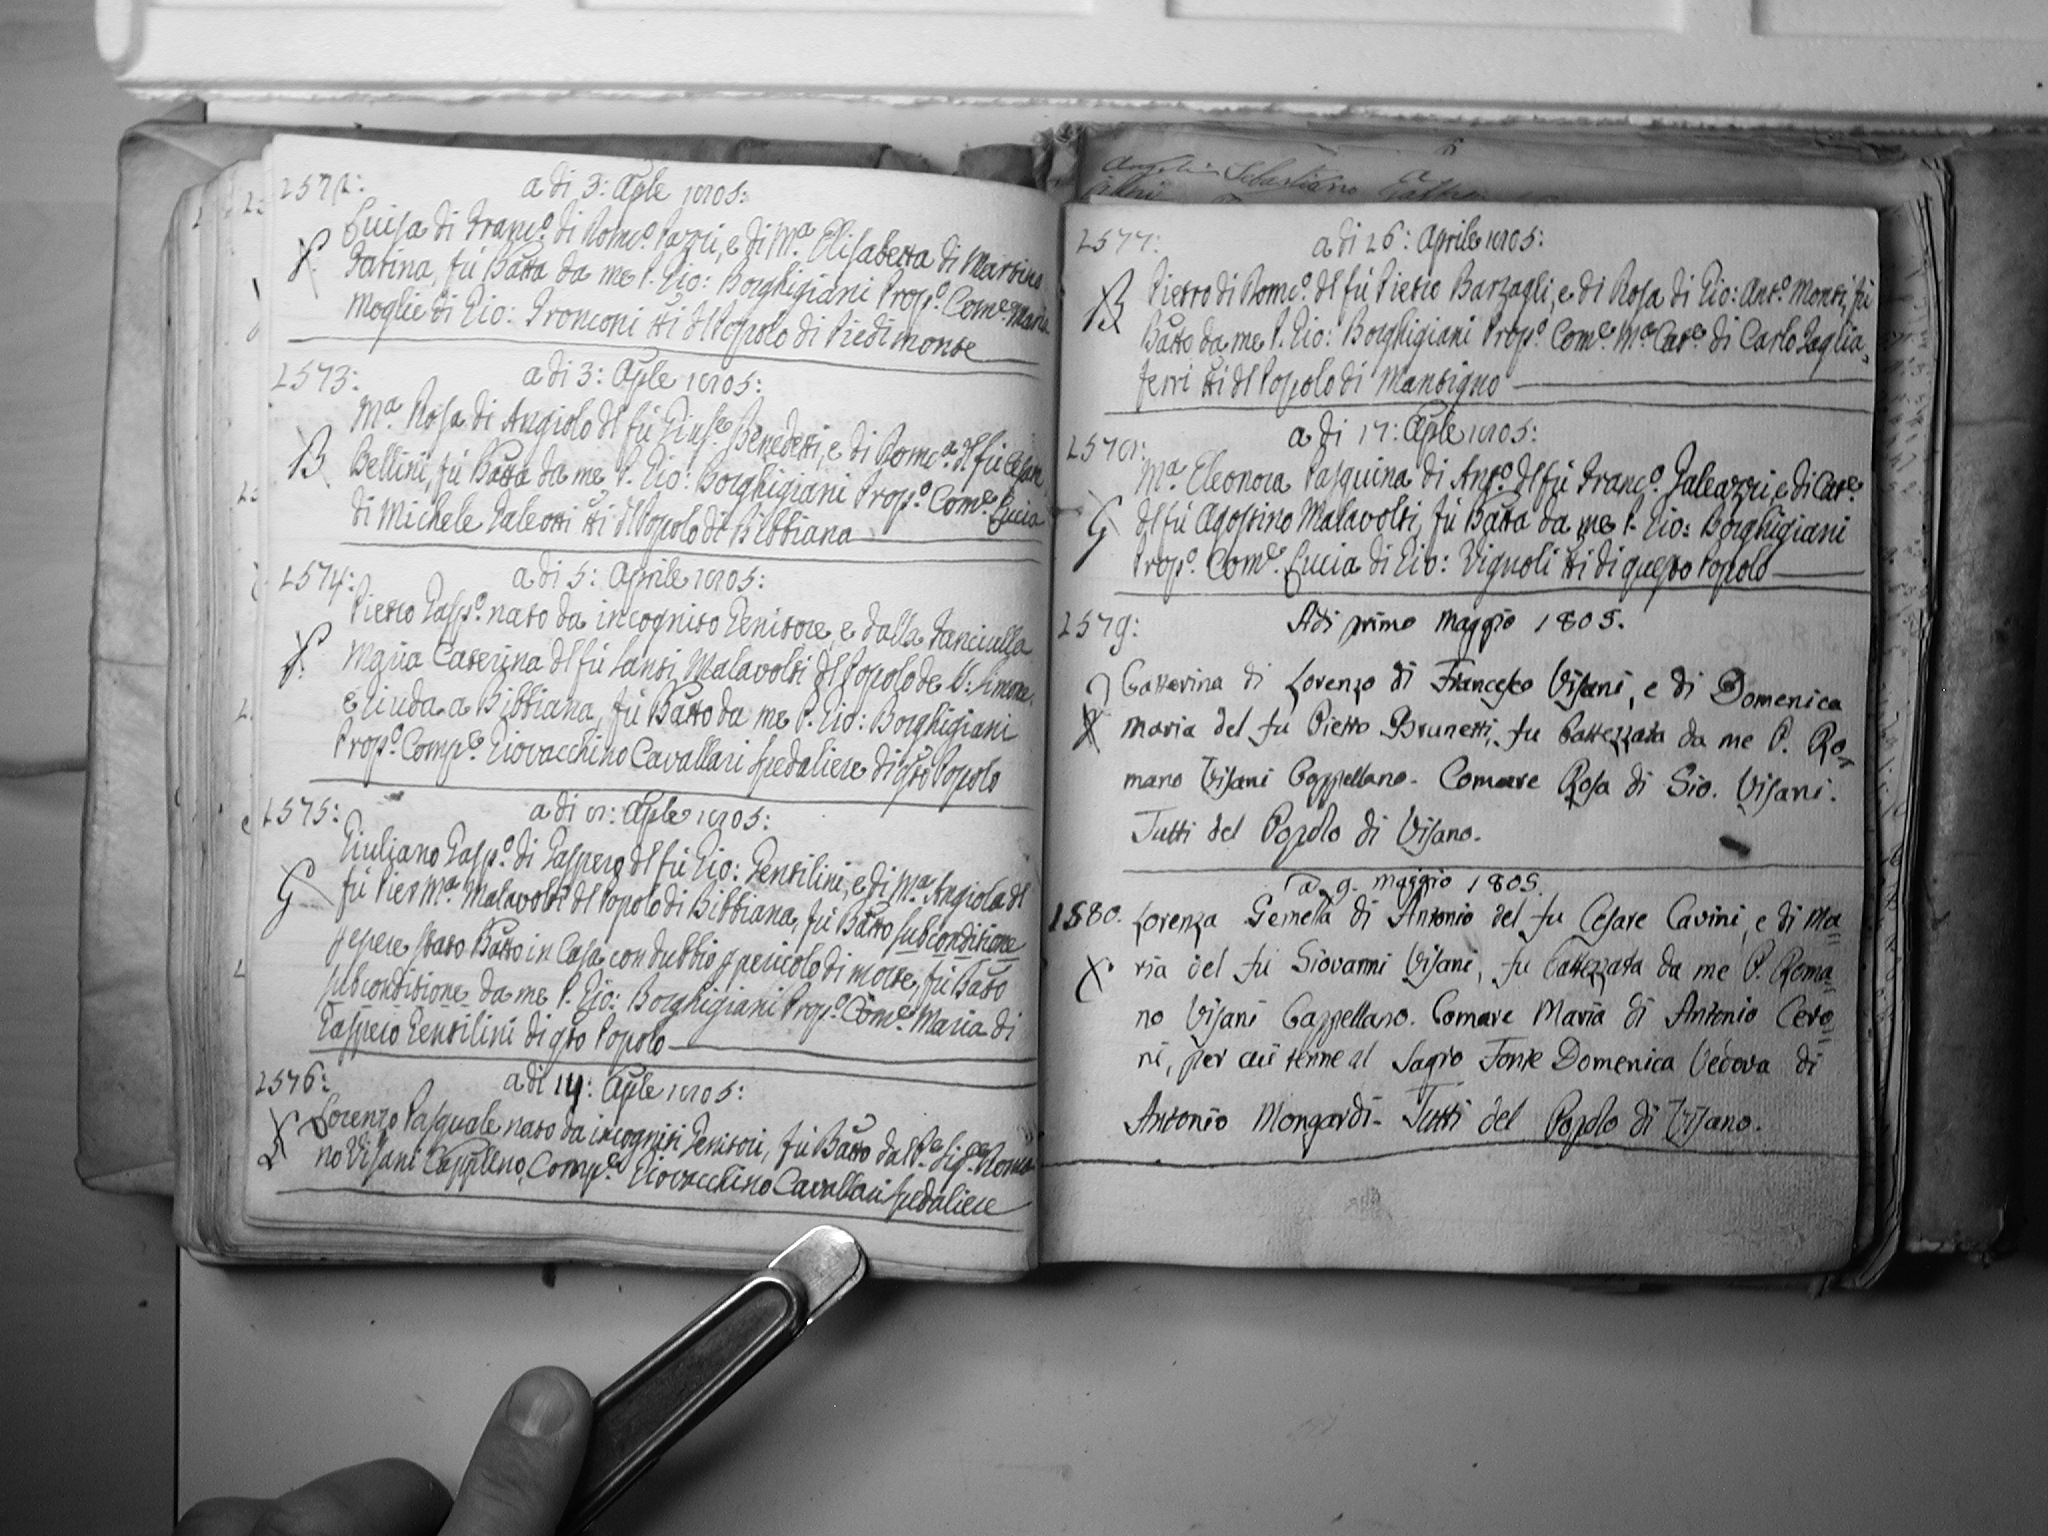 2572:
a di 3: Aple 1805:
Luisa di Franc.º di Dom.º Pazzi, e di M.ª Elisabetta di Martino
P.
Fatina, fù Batta da me P. Gio: Borghigiani Prop.º Com.e Maria
Moglie di Gio: Tronconi tti dl Popolo di Piedimonte
2573:
a di 3: Aple 1805:
M.ª Rosa di Angiolo dl fù Gius.e Benedetti, e di Dom.ª dl fù Cesare
B
Bellini, fù Batta da me P. Gio: Borghigiani Prop.º Com.e Lucia
di Michele Galeotti tti dl Popolo di Bibbiana
2574:
a di 5: Aprile 1805:
Pietro Gasp.º nato da incognito Genitore, e dalla Fanciulla
P.
Mària Caterina dl fù Santi Malavolti dl Popolo de S: Simone,
e Giuda a Bibbiana, fù Batto da me P. Gio: Borghigiani
Prop.º Comp.e Giovacchino Cavallari Spedaliere di qto Popolo
2575:
a di 8: Aple 1805:
Giuliano Gasp.º di Gaspero dl fù Gio: Gentilini, e di M.ª Angiola dl
G
fù Pier M.ª Malavolti dl Popolo di Bibbiana, fù Batto subconditione
p epere stato Batto in Casa con dubbio p pericolo di morte, fù Batto
subconditione da me P. Gio: Borghigiani Prop.º Com.e Maria di
Gaspero Gentilini di qto Popolo
2576:
a di 14: Aple 1805:
Lorenzo Pasquale nato da incogniti Genitori, fù Batto dal R.e Sig.e Roma
no Visani Cappllno, Comp.e Giovacchino Cavallari Spedaliere
2577:
a di 26: Aprile 1805:
Pietro di Dom.º dl fù Pietro Barzagli, e di Rosa di Gio: Ant.º Monti, fù
B
Batto da me P. Gio: Borghigiani Prop.º Com.e M.ª Cat.ª di Carlo Taglia,
ferri tti dl Popolo di Mantigno
2578:
a di 17: Aple 1805:
M.ª Eleonora Pasquina di Ant.º dl fù Franc.º Galeazzi, e di Cat.ª
G
dl fù Agostino Malavolti, fù Batta da me P. Gio: Borghigiani
Prop.º Com.e Lucia di Gio: Vignoli tti di questo Popolo
2579:
Adi primo Maggio 1805.
Catterina di Lorenzo di Francesco Visani, e di Domenica
Maria del fu Pietro Brunetti, fu battezzata da me P. Ro-
mano Visani Cappellano. Comare Rosa di Gio. Visani.
Tutti del Popolo di Visano.
a. 9. maggio 1805.
1580. Lorenza Gemella di Antonio del fu Cesare Cavini, e di Ma
ria del fu Giovanni Visani, fu battezzata da me P. Roma
no Visani Cappellano. Comare Maria di Antonio Cero
ni, per cui tenne al Sagro Fonte Domenica Vedova di
Antonio Mongardi. Tutti del Popolo di Visano.